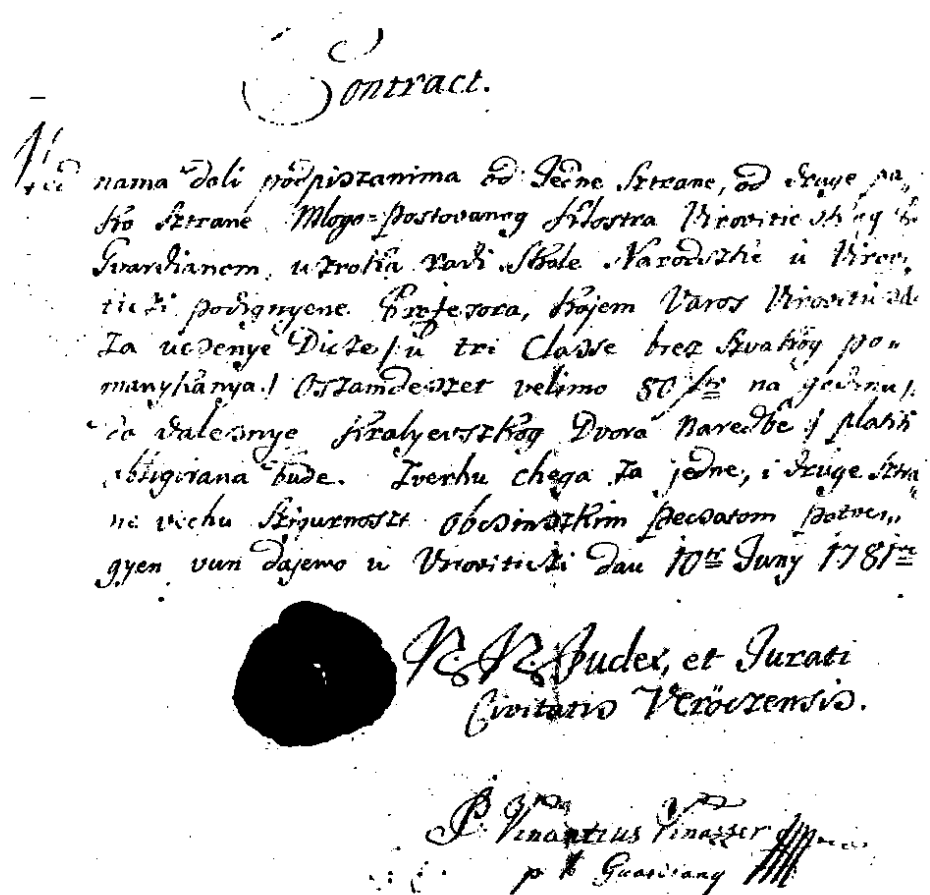 Contract.
nama dolipodpiszanima od Jedne sztrane, od druge pa„
ko sztrane Mlogo=postovanog Klostra Virovitickog
Guardianom, uzrokia radi Skole Narodszke u Viroi„
ticzi podignyene Profesora, kojem Varos
za ucsenye Dicze / u tri Classe brez szvakog po„
manykanya / Oszamdeszet velimo 80 fti na godinu /
valosnye Kralyevszkog Dvora naredbe / platiti
obligirana bude. Zverhu chega za jedne, i druge sztra„
ne vechu szigurnoszt obcsinszkim pecsatom potver„
gyen vun dajemo u Viroviticzi dan 10ti Juny 1781ve
N. N. Judex, et Jurati
Civitatis Veröczensis.
P. Venantius
p t Guardiany